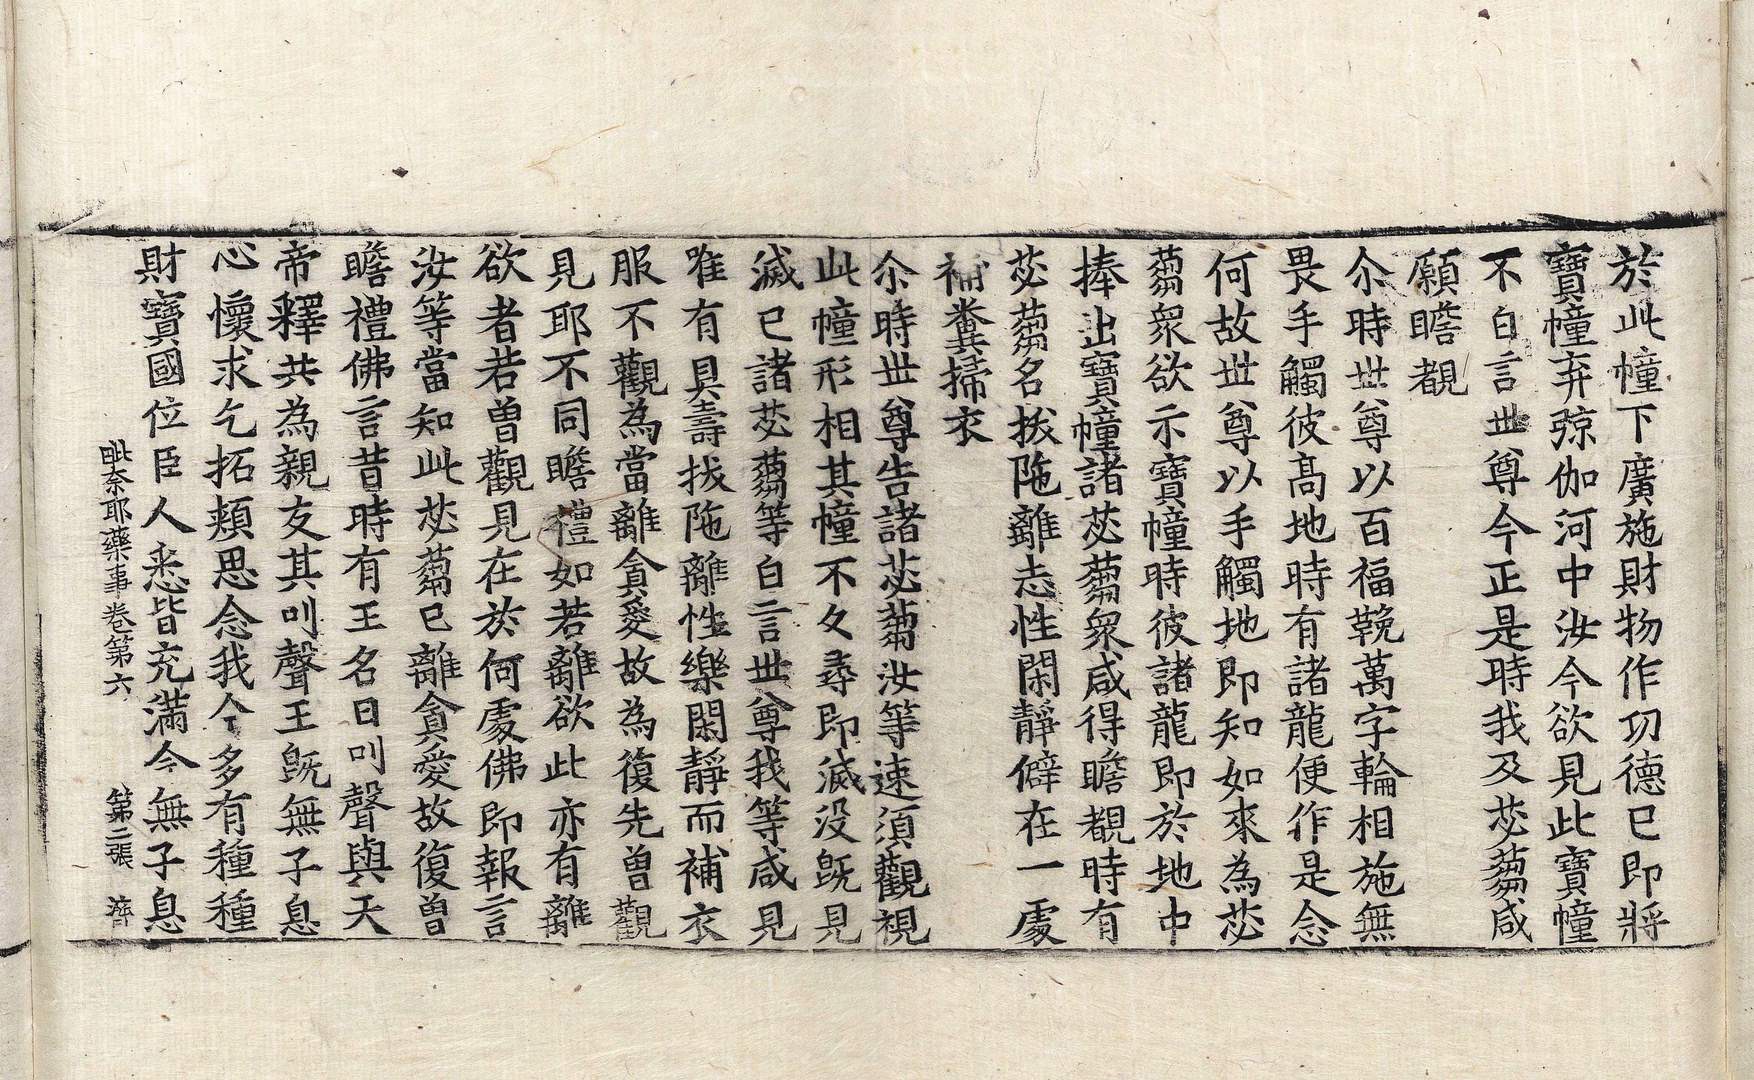 於此幢下廣施財物作功德已即將
寶幢弃弶伽河中汝今欲見此寶幢
不白言世尊今正是時我及苾蒭咸
願瞻覩
尒時世尊以百福鞔萬字輪相施無
畏手觸彼高地時有諸龍便作是念
何故世尊以手觸地即知如來為苾
蒭衆欲示寶幢時彼諸龍即於地中
捧出寶幢諸苾蒭衆咸得瞻覩時有
苾蒭名拔陁離志性閑靜僻在一處
補糞掃衣
尒時世尊告諸苾蒭汝等速須觀視
此幢形相其幢不久尋即滅没既見
滅已諸苾蒭等白言世尊我等咸見
唯有具壽拔陁離性樂閑靜而補衣
服不觀為當離貪愛故為復先曾觀
見耶不同瞻禮如若離欲此亦有離
欲者若曾觀見在於何處佛即報言
汝等當知此苾蒭已離貪愛故復曾
瞻禮佛言昔時有王名曰叫聲與天
帝釋共為親友其叫聲王既無子息
心懷求乞拓頰思念我今多有種種
財寶國位臣人悉皆充滿今無子息
毗奈耶藥事卷第六 第二張 濟